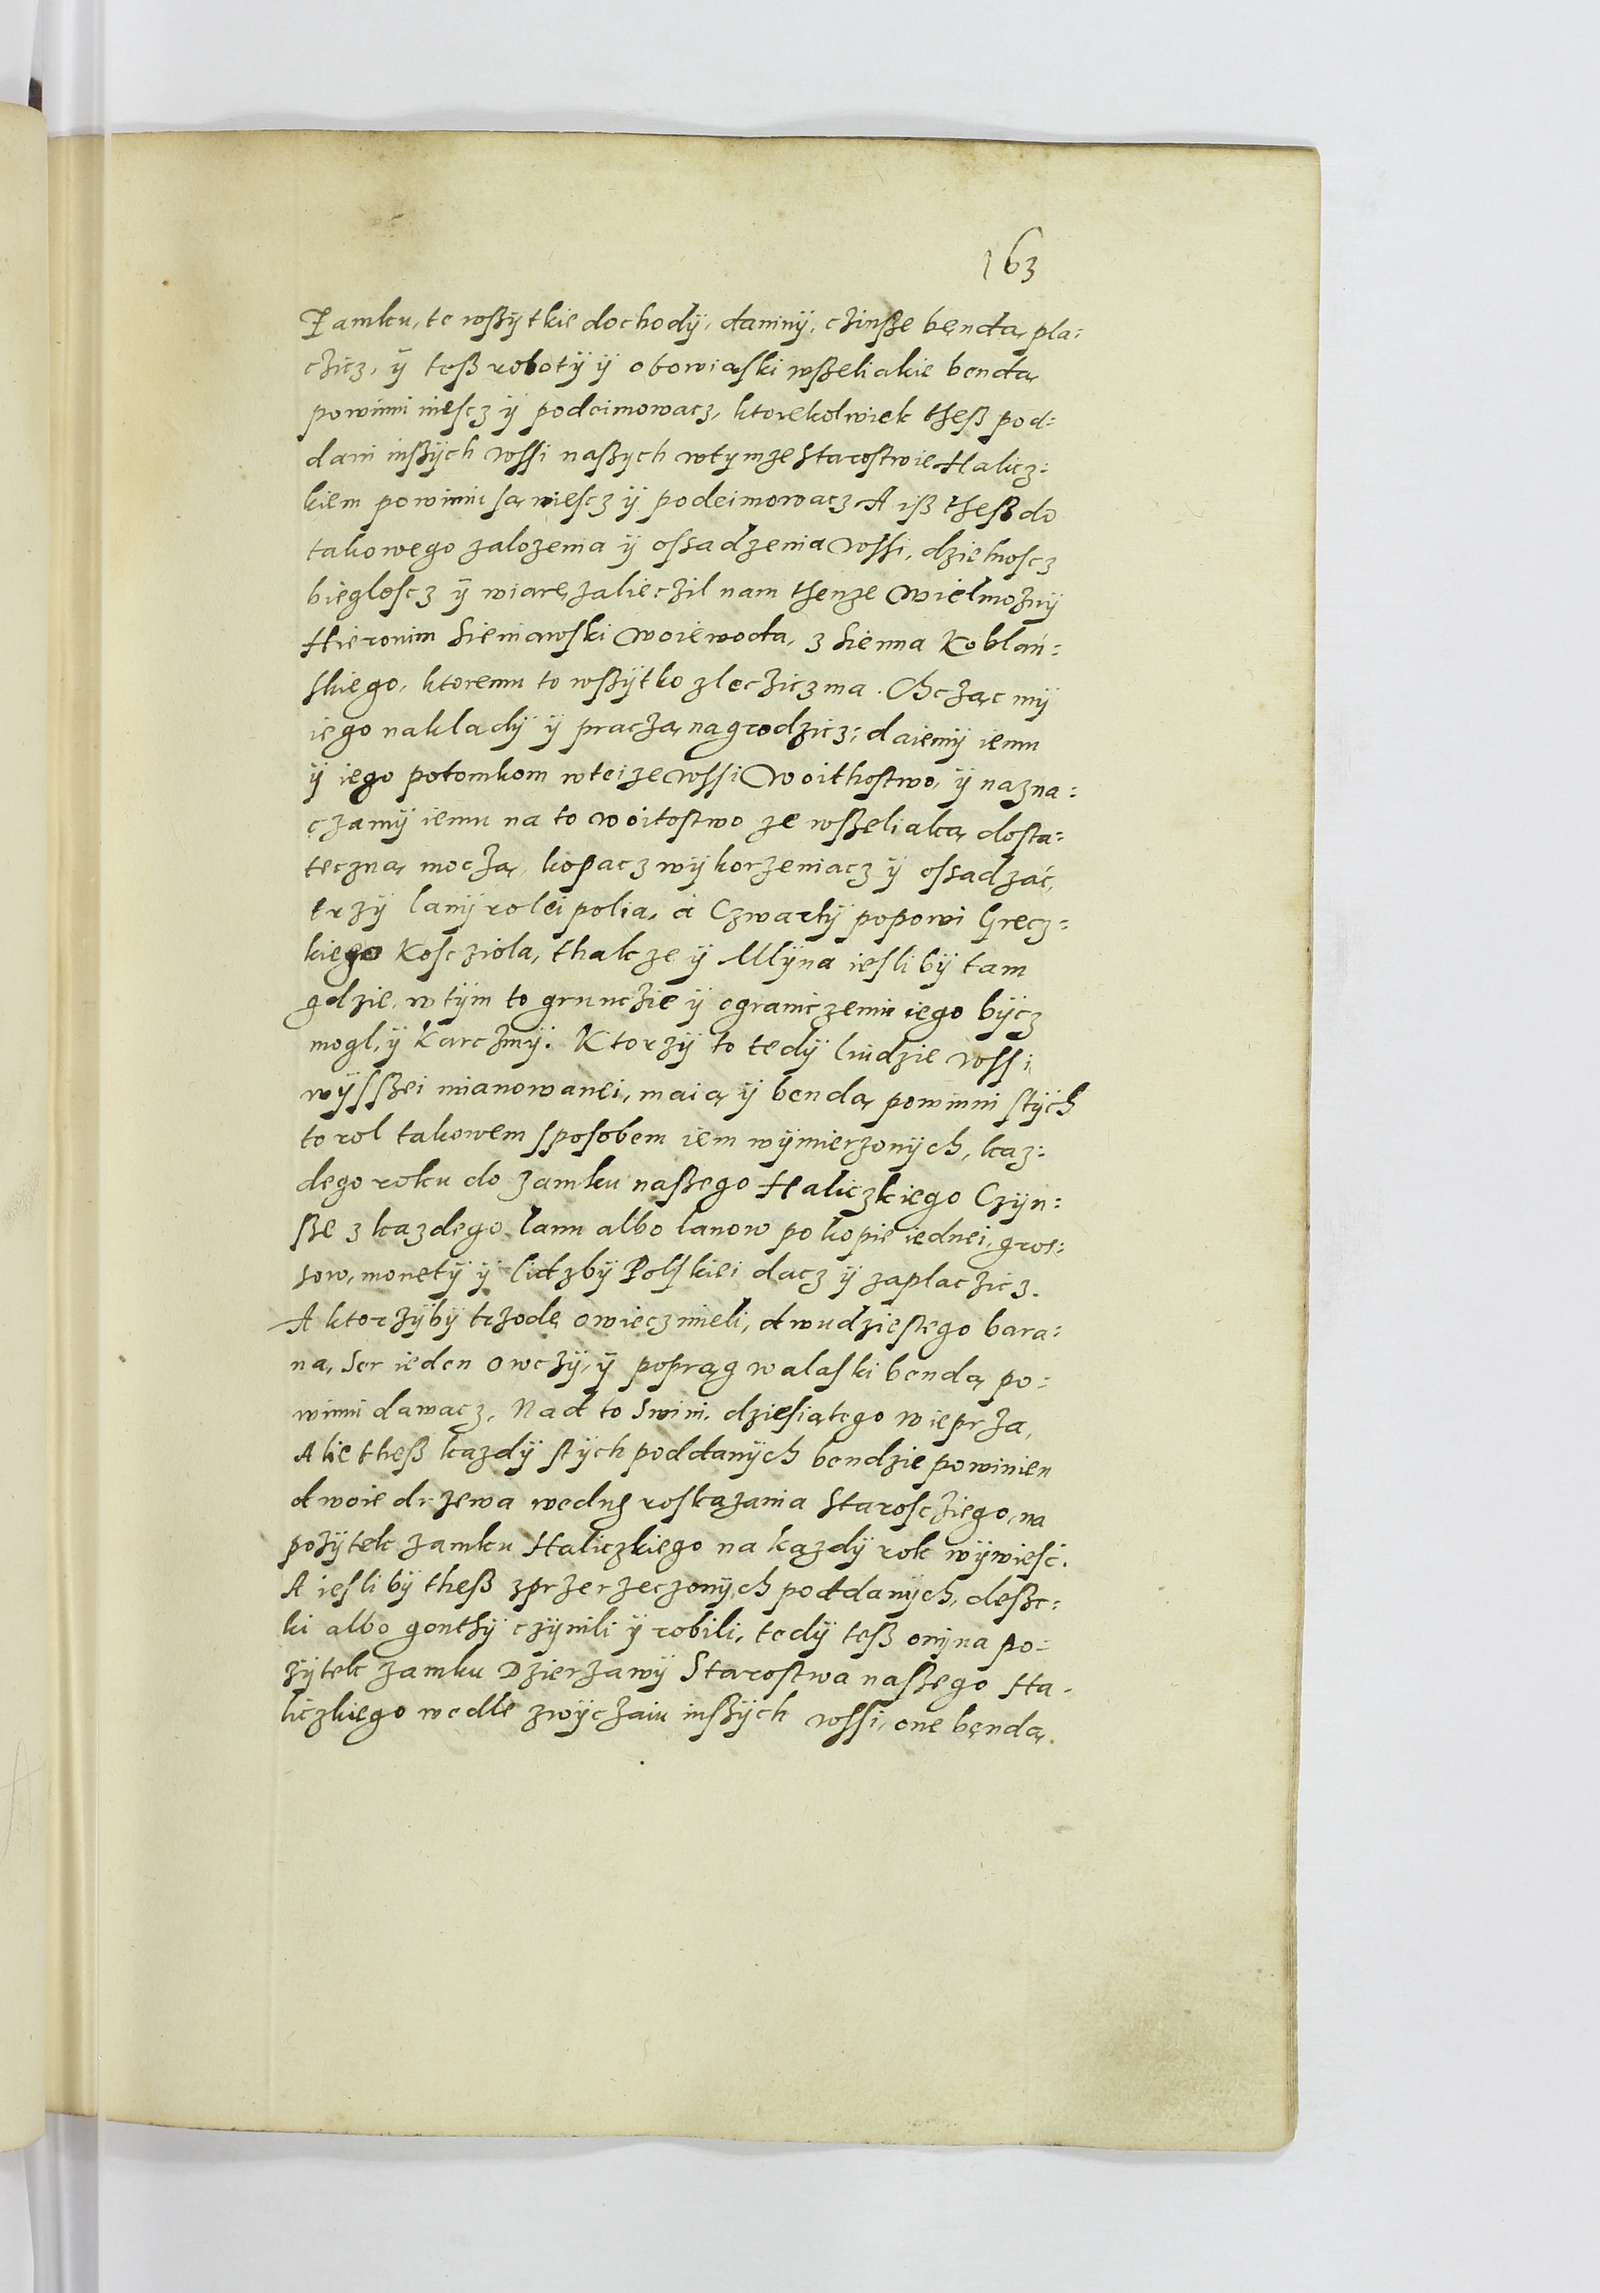 163
Zamku, te wszÿtkie dochodÿ, daninÿ, czinsze bendą pla=
czicz, ÿ tesz robotÿ ÿ obowiąski wszeliakie bendą
powinni niescz ÿ podeimowacz, ktorekolwiek thesz pod=
dani inszÿch wssi naszÿch wtymze Starostwie Halicz=
kiem powinni są niescz ÿ podeimowacz A isz thesz do
takowego zalozenia ÿ ossadzenia wssi, dzielnoscz
biegloscz ÿ wiarę zalieczil nam thenze Wielmoznÿ
Hieronim Sieniawski Woiewoda, z Sienna Koblań=
skiego, ktoremu to wszÿtko zlecziczma. Chcząc mÿ
iego nakladÿ ÿ praczą nagrodzicz; daiemÿ iemu
ÿ iego potomkom wteize wssi Woithostwo, ÿ nazna=
czamÿ iemu na to woitostwo ze wszeliaką dosta=
teczną moczą, kopacz wÿkorzeniacz ÿ ossadzać,
trzÿ lanÿ rolei polia, a Czwartÿ popowi Grecz=
kiego Koscziola, thakze ÿ Mlÿna iesli bÿ tam
gdzie, w tÿm to grunczie ÿ ograniczeniu iego bÿcz
mogl, ÿ Karczmÿ. Ktorzÿ to tedÿ liudzie wssi
wÿsszei mianowanei, maią ÿ bendą powinni stÿch
to rol takowem sposobem iem wÿmierzonÿch, kaz=
dego roku do zamku naszego Haliczkiego Czÿn=
sze z kazdego lanu albo lanow po kopie iednei, gros=
sow, monetÿ ÿ lidzbÿ Polskiei dacz ÿ zaplaczicz.
A ktorzÿbÿ trzodę owiecz mieli, dwudziestego bara=
na, Ser ieden owczÿ, ÿ poprąg walaski bendą po=
winni dawacz, Nad to Swini, dziesiątego wieprza,
Alie thesz kazdÿ stÿch poddanÿch bendzie powinien
dwoie drzewa wedug roskazania Starosczięgo, na
pożÿtek zamku Haliczkiego na kazdÿ rok wÿwieść.
A iesli bÿ thesz zprzerzeczonÿch poddanÿch, deszc=
ki albo gonthÿ czÿnili ÿ robili, tedÿ tesz onÿ na po=
zÿtek zamku Dzierzawÿ Starostwa naszego Ha=
liczkiego wedle zwÿczaiu inszÿch wssi, one bendą.